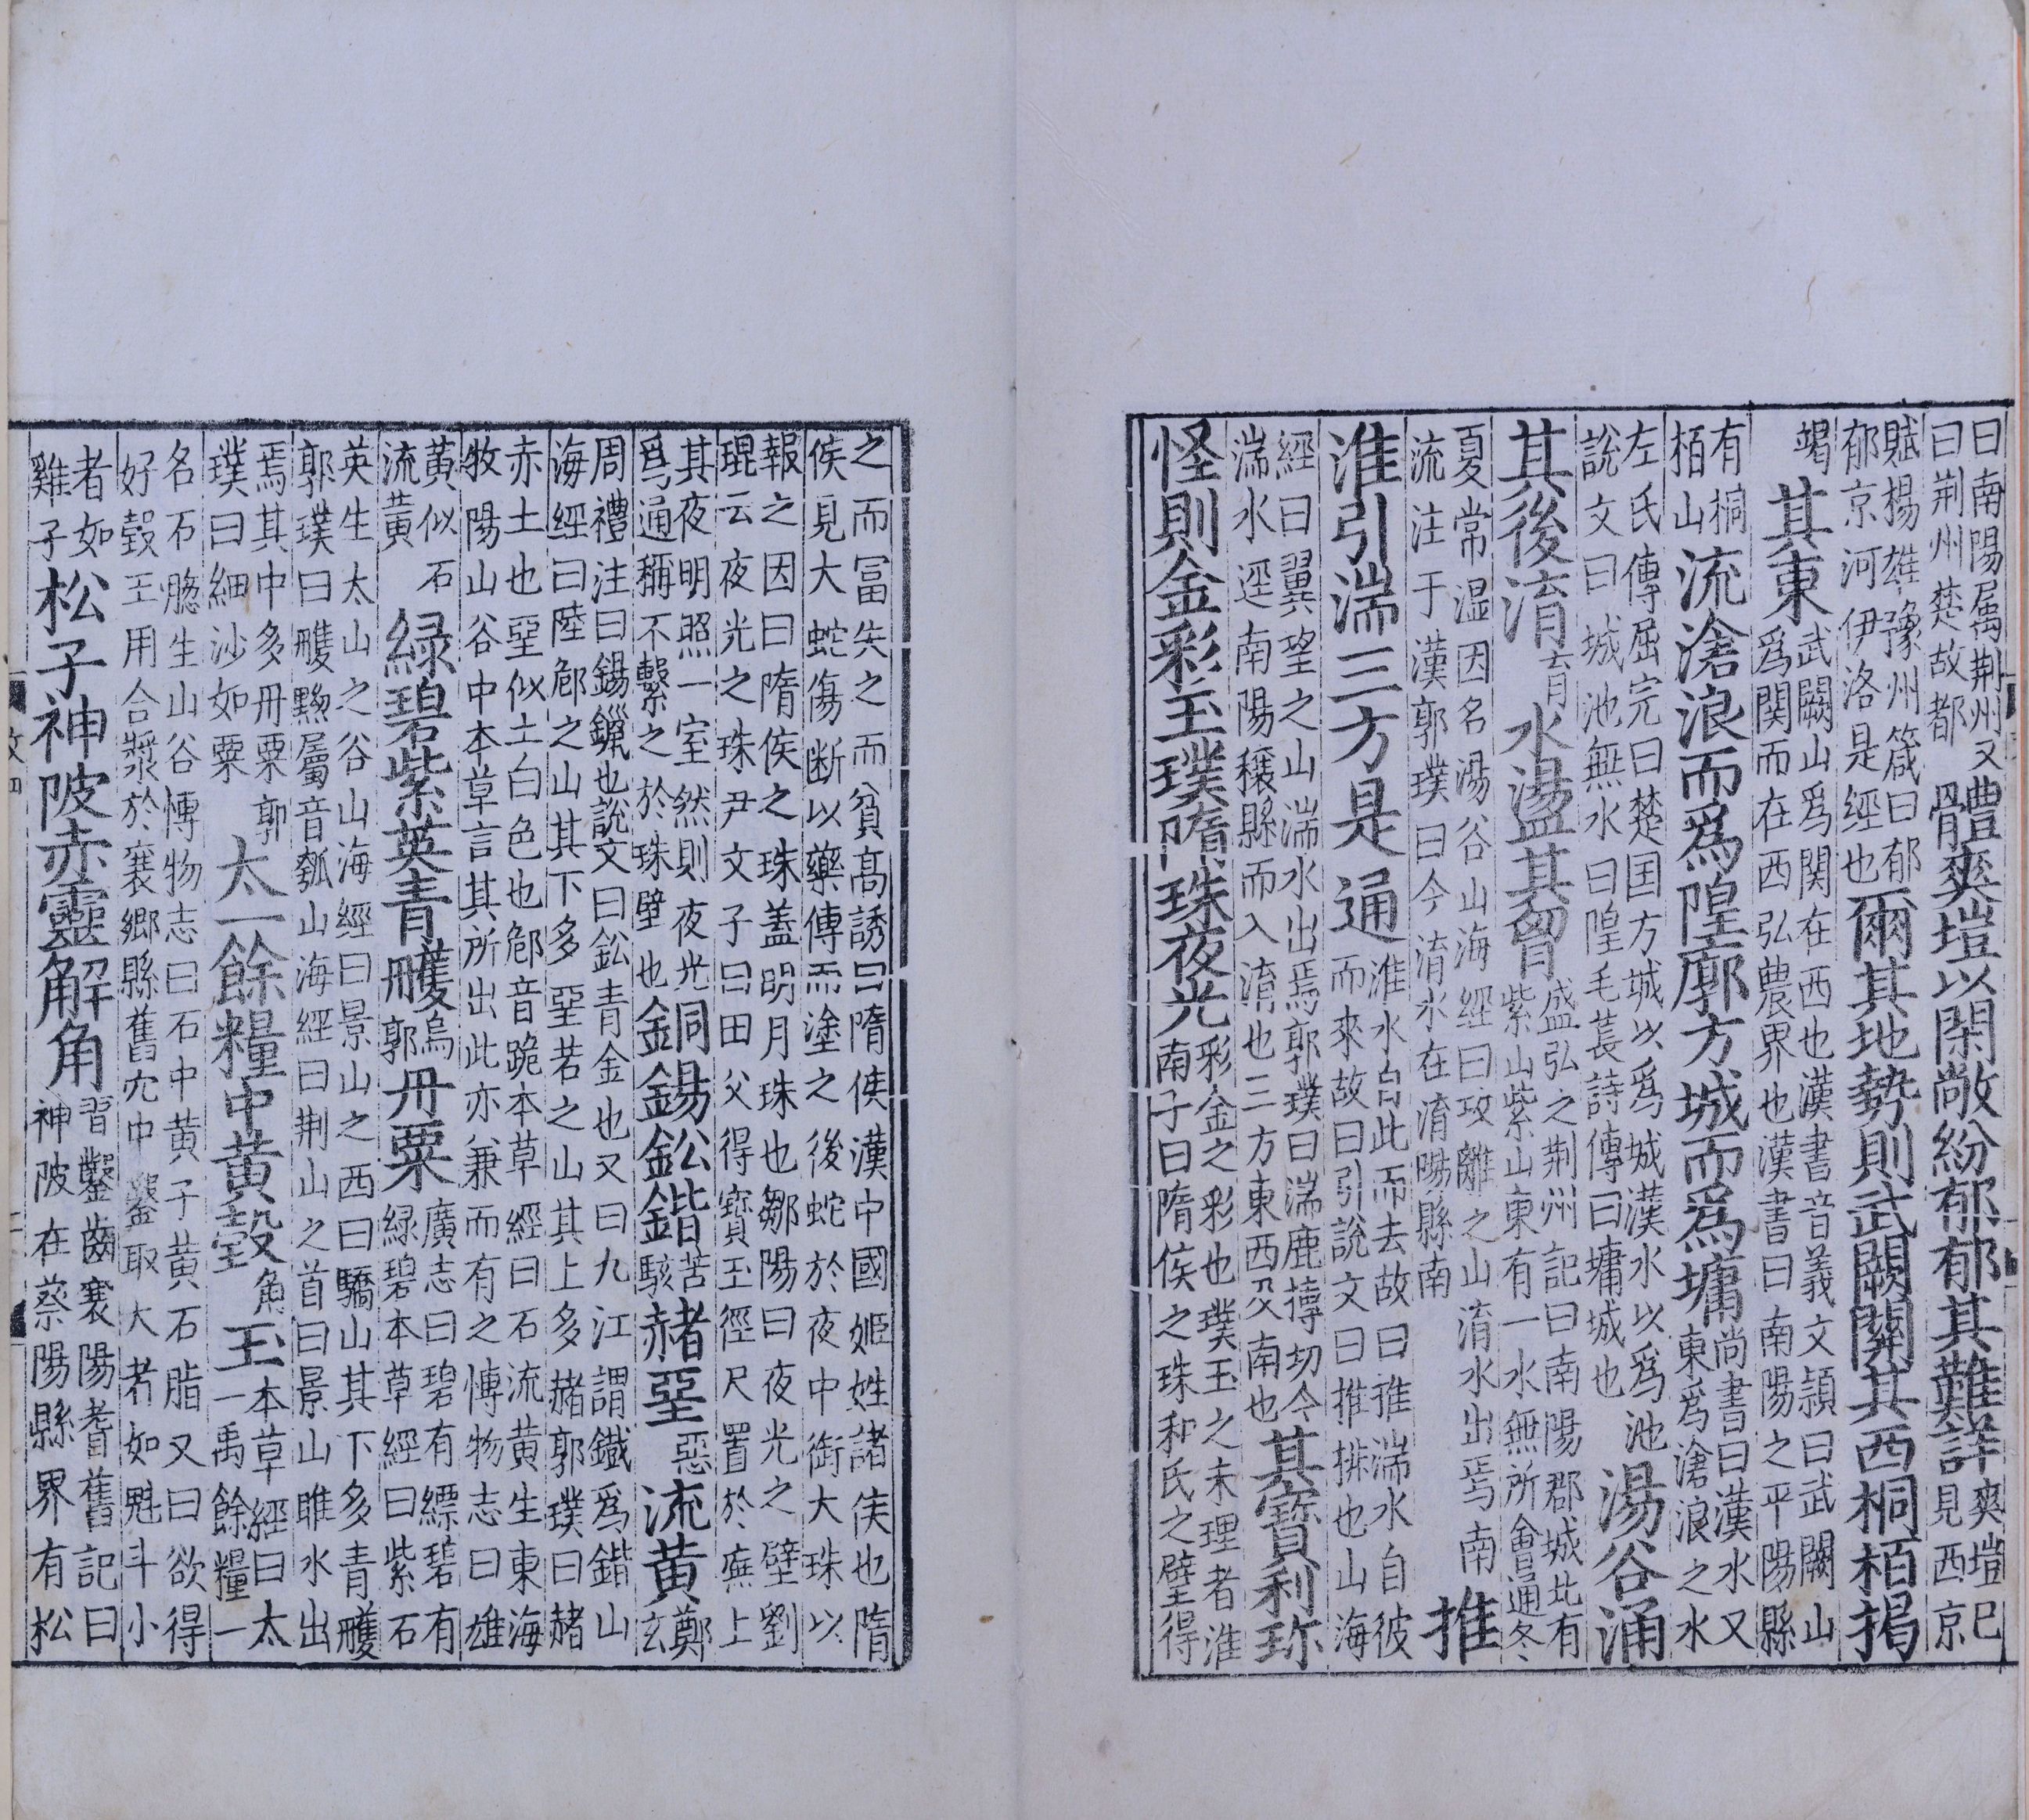 曰南陽屬荆州又曰荆州楚故都體爽塏以閑敞紛郁郁其難詳爽塏已見西京
賦揚雄豫州箴曰郁郁京河伊洛是經也爾其地勢則武闕關其西桐栢揭
竭其東武闕山爲関在西也漢書音義文穎曰武闕山爲関而在西弘農界也漢書曰南陽之平陽縣
有桐栢山流滄浪而爲隍廓方城而爲墉尚書曰漢水又東爲滄浪之水
左氏傳屈完曰楚囯方城以爲城漢水以爲池說文曰城池無水曰隍毛萇詩傳曰墉城也湯谷涌
其後淯育水盪其胷盛弘之荆州記曰南陽郡城北有紫山紫山東有一水無所會通冬
夏常温因名湯谷山海經曰攻離之山淯水出焉南流注于漢郭璞曰今淯水在淯陽縣南推
淮引湍三方是通淮水自此而去故曰推湍水自彼而來故曰引說文曰推排也山海
經曰翼望之山湍水出焉郭璞曰湍鹿摶切今湍水逕南陽穰縣而入淯也三方東西及南也其寶利珎
怪則金彩玉璞隋珠夜光彩金之彩也璞玉之未理者淮南子曰隋侯之珠和氏之璧得
之而冨失之而貧髙誘曰隋侯漢中國姬姓諸侯也隋侯見大蛇傷断以藥傳而塗之後蛇於夜中銜大珠以
報之因曰隋侯之珠盖明月珠也鄒陽曰夜光之璧劉琨云夜光之珠尹文子曰田父得寶玉徑尺置於廡上
其夜明照一室然則夜光爲通稱不繫之於珠璧也銅錫鈆鍇苦駭赭堊惡流黃鄭玄
周禮注曰錫鑞也說文曰鈆青金也又曰九江謂鐵爲鍇山海經曰陸郈之山其下多堊若之山其上多赭郭璞曰赭
赤土也堊似土白色也郈音跪本草經曰石流黄生東海牧陽山谷中本草言其所出此亦兼而有之博物志曰雄
黄似石流黄緑碧紫英青雘烏郭丹粟廣志曰碧有縹碧有緑碧本草經曰紫石
英生太山之谷山海經曰景山之西曰驕山其下多青雘郭璞曰雘黝屬音瓠山海經曰荆山之首曰景山睢水出
焉其中多丹粟郭璞曰細沙如粟太一餘糧中黄㲄角玉本草經曰太一禹餘糧一
名石䐉生山谷博物志曰石中黄子黄石脂又曰欲得好㲄玉用合漿於襄鄉縣舊穴中鑿取大者如魁斗小
者如雞子松子神陂赤靈解角習鑿齒襄陽耆舊記曰神陂在蔡陽縣界有松